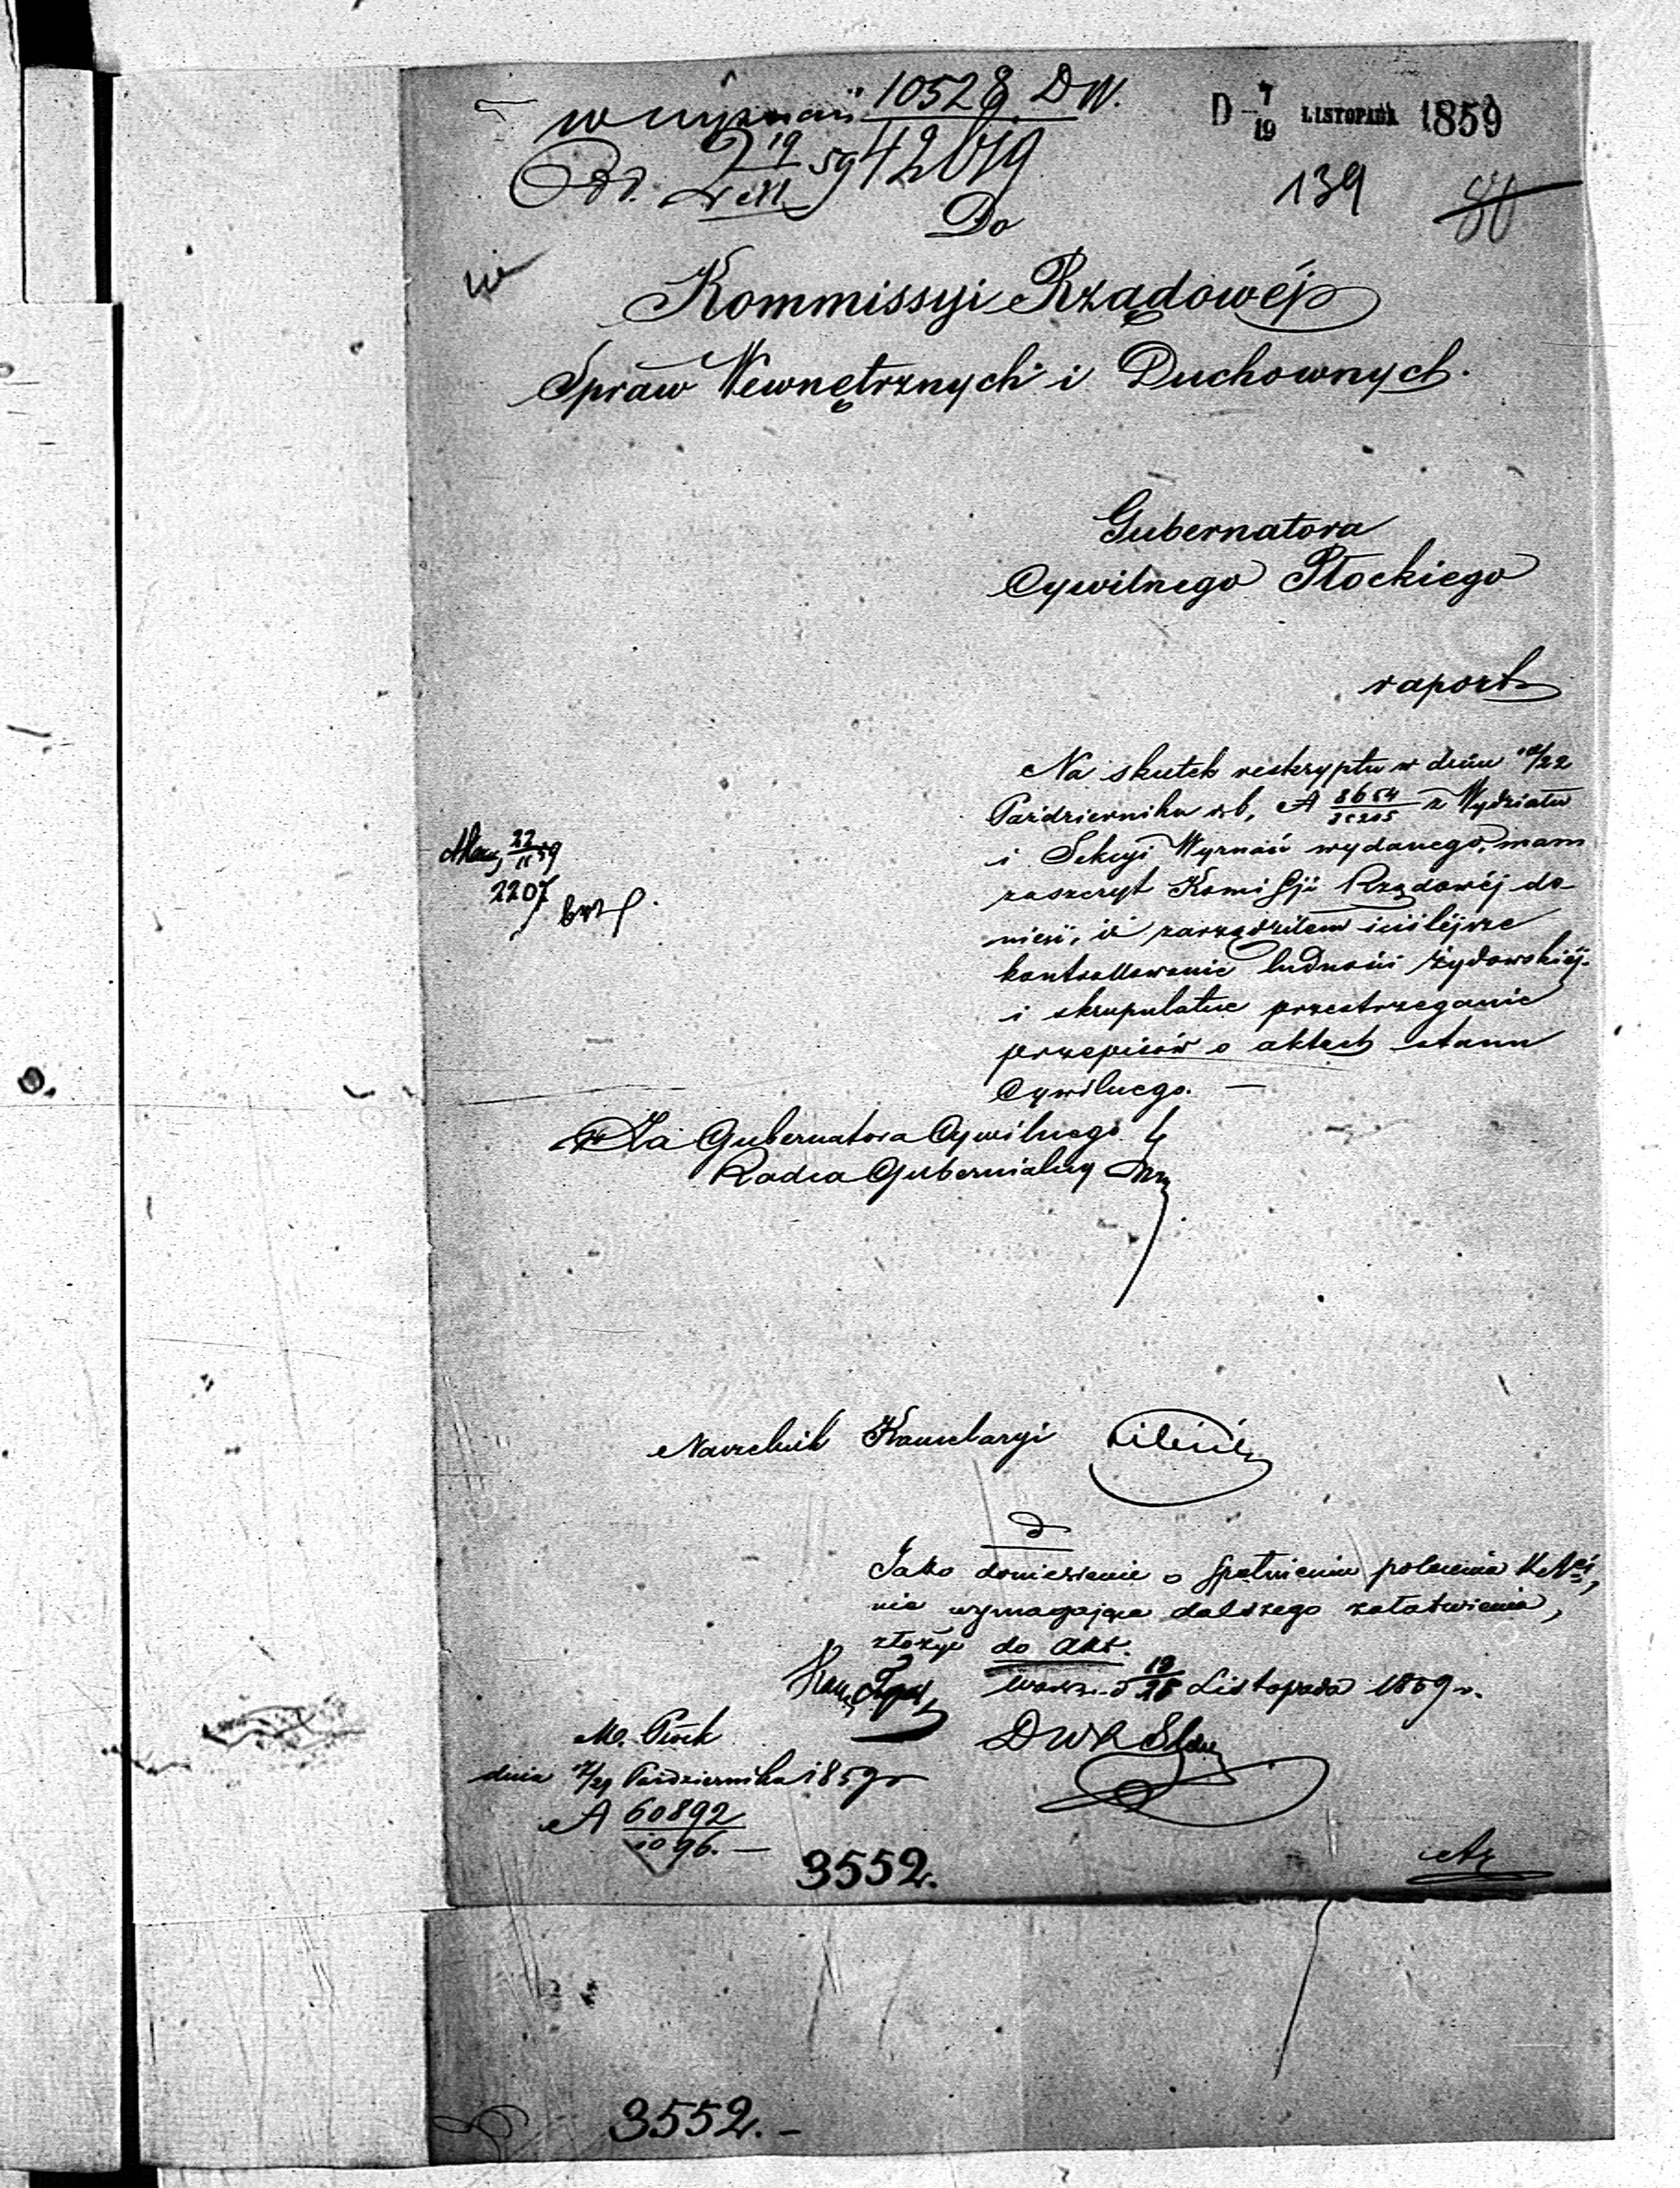 w wyznań 10528 DW.
D 7/19 LISTOPADA 1859
Od. 19/XI 59 42619
139
Do
Kommissyi Rządowéj
Spraw Wewnętrznych i Duchownych.
Gubernatora
Cywilnego Płockiego
raport
Na skutek reskryptu w dniu 10/22
Październiku r.b, N 8654/35205 z Wydziału
i Sekcyi Wyznań wydanego, mam
zaszczyt Komissji Rządowéj do-
nieść, iż zarządziłem iściślejsze
kontrollowanie ludności żydowskiéj
i skrupulatne przestrzeganie
przepisów o aktach stanu
Cywilnego. —
22/11 59
2207
Za Gubernatora Cywilnego
Radca Gubernialny
Naczelnik Kancelaryi
Jako doniesienie o spełnieniu polecenia
nie wymagające dalszego załatwienia,
złożyć do akt.
Warsz. d 13/25 Listopada 1859 r.
M. Płock
dnia 17/29 Października 1859 r
N 60892/1096. —
3552.
3552. -